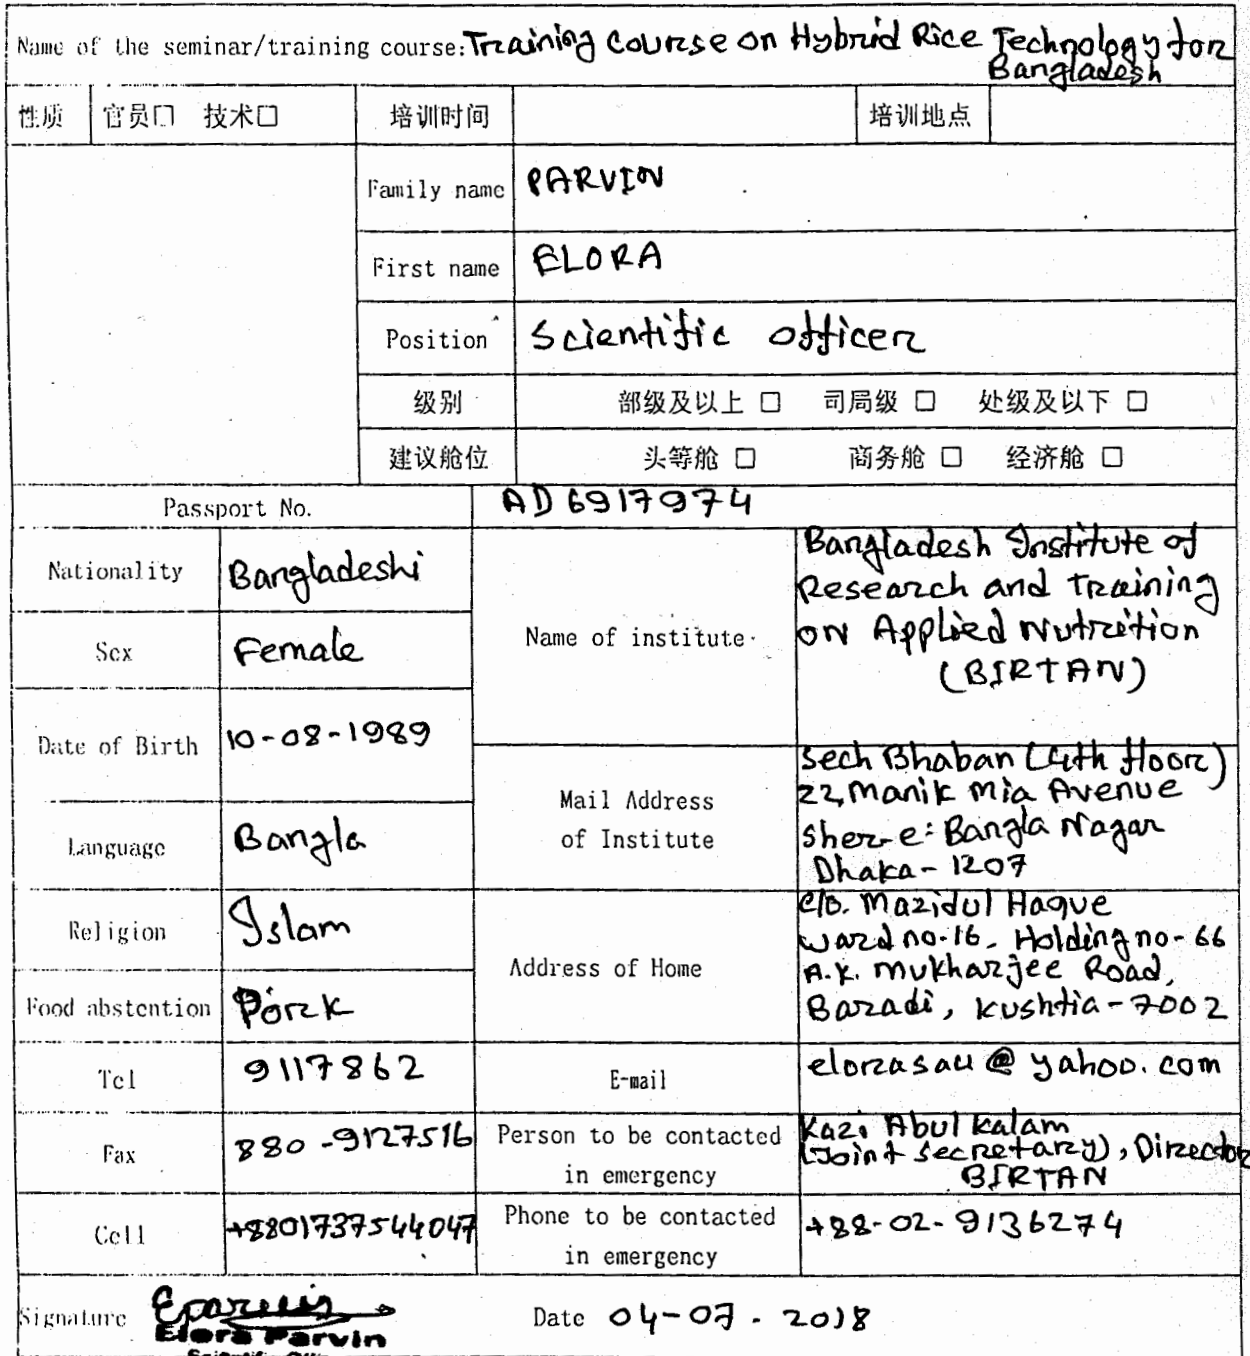 Name of the seminar/training course: Training Course on Hybrid Rice Technology for
Bangladesh
性质 官员□ 技术□ 培训时间 培训地点
Family name PARVIN
First name ELORA
Position Scientific officer
级别 部级及以上 □ 司局级 □ 处级及以下 □
建议舱位 头等舱 □ 商务舱 □ 经济舱 □
Passport No. AD6917974
Nationality Bangladeshi
Sex Female
Date of Birth 10-08-1989
Language Bangla
Religion Islam
Food abstention Pork
Tel 9117862
Fax 880-9127516
Cell +8801737544047
Name of institute
Bangladesh Institute of
Research and Training
on Applied Nutrition
(BIRTAN)
Mail Address
of Institute
Sech Bhaban (4th floor)
22, Manik Mia Avenue
Sher-e-Bangla Nagar
Dhaka-1207
Address of Home
C/o. Mazidul Haque
Ward no-16, Holding no-66
A.K. Mukharjee Road,
Baradi, Kushtia-7002
E-mail elorasau@yahoo.com
Person to be contacted
in emergency
Kazi Abul Kalam
(Joint Secretary), Director
BIRTAN
Phone to be contacted
in emergency
+88-02-9136274
Signature Eparvin Date 04-07.2018
Elora Parvin